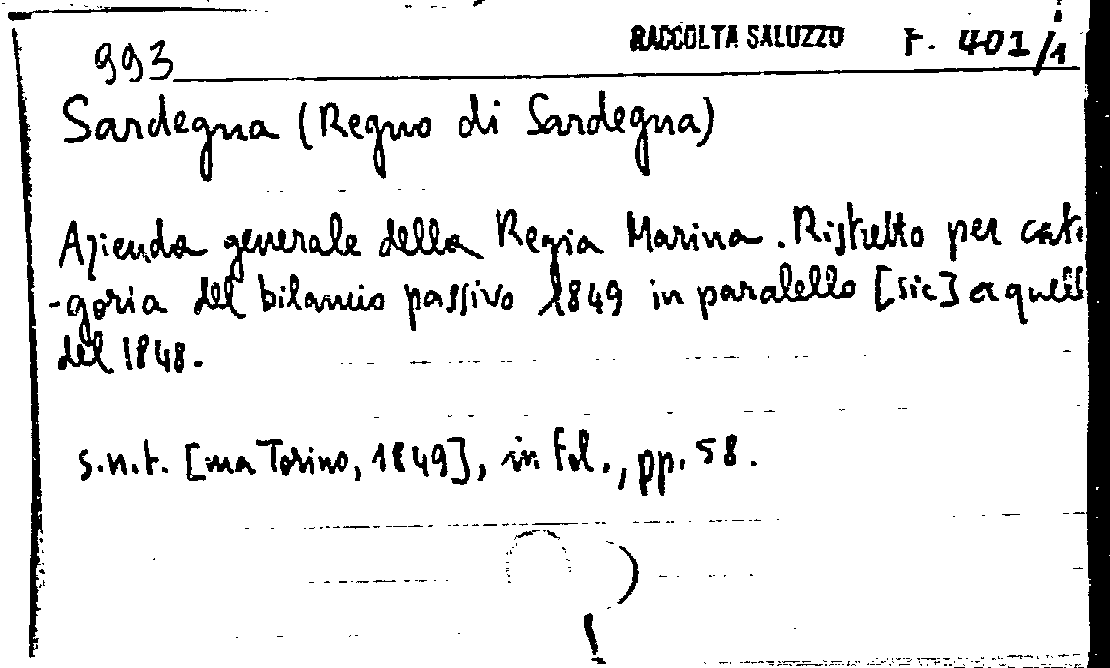 993 RACCOLTA SALUZZO F. 401/1
Sardegna (Regno di Sardegna)
Azienda generale della Regia Marina. Ristretto per cate
-goria del bilancio passivo 1849 in paralello [sic] a quell
del 1848.
s.n.t. [ma Torino, 1849], in fol., pp. 58.